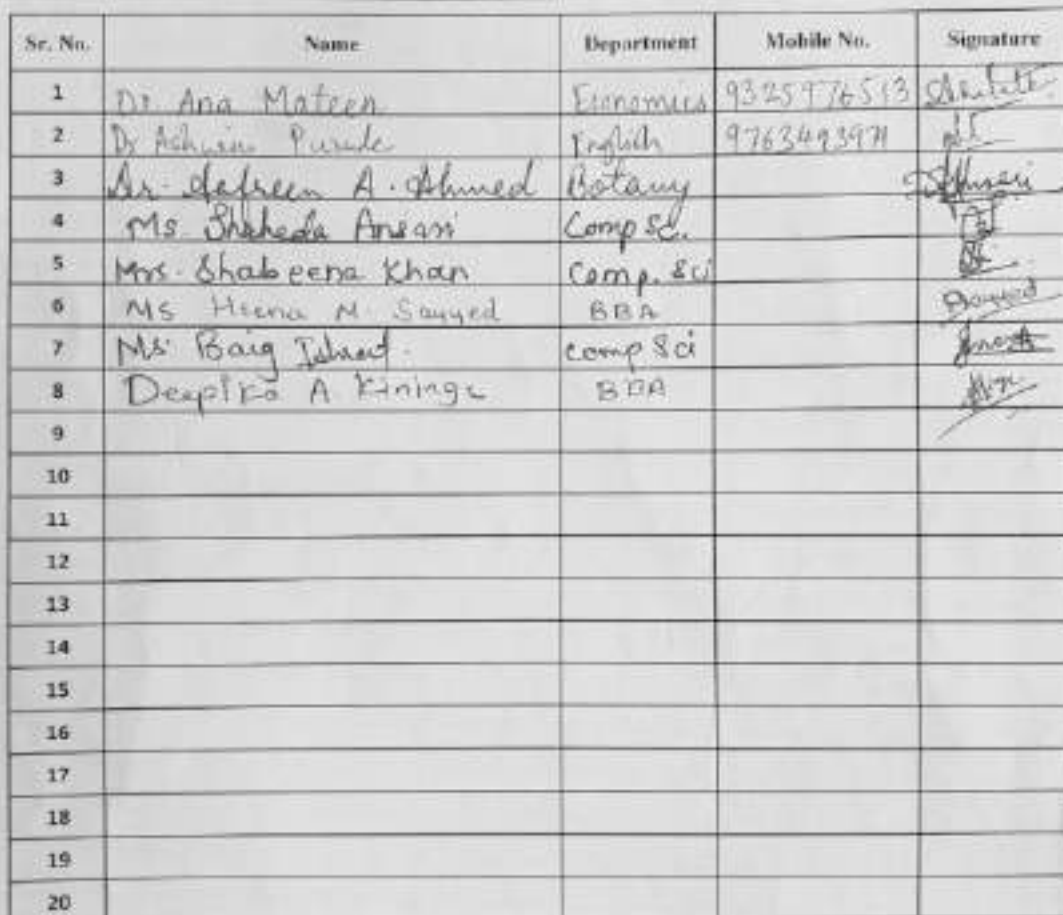 Sr. No. Name Department Mobile No. Signature
1 Dr. Ana Mateen Economics 9325976513
2 Dr Ashwini Purude English
3 Dr. Aafreen A. Ahmed Botany
4 Ms. Shaheda Ansari Comp Sc.
5 Mrs. Shabeena Khan Comp. Sci
6 Ms Heena M. Sayyed BBA Sayyed
7 Ms. Baig Ishrat. comp Sci
8 Deepika A. Kininge BBA
9
10
11
12
13
14
15
16
17
18
19
20